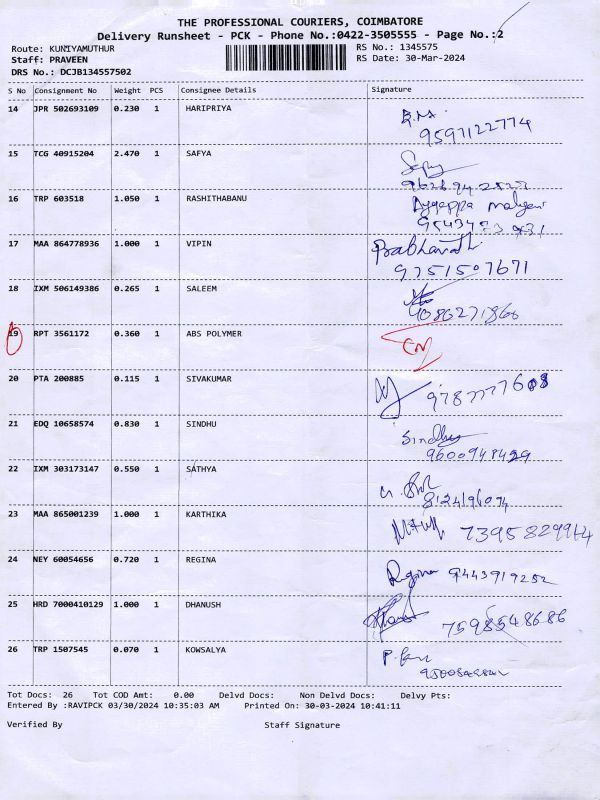 THE PROFESSIONAL COURIERS, COIMBATORE
Delivery Runsheet - PCK - Phone No.:0422-3505555 - Page No.:2
Route: KUNIYAMUTHUR RS No.: 1345575
Staff: PRAVEEN RS Date: 30-Mar-2024
DRS No.: DCJB134557502
S No Consignment No Weight PCS Consignee Details Signature
14 JPR 502693109 0.230 1 HARIPRIYA
9597122774
15 TCG 40915204 2.470 1 SAFYA
16 TRP 603518 1.050 1 RASHITHABANU
17 MAA 864778936 1.000 1 VIPIN Prabharath
9751507671
18 IXM 506149386 0.265 1 SALEEM
19 RPT 3561172 0.360 1 ABS POLYMER
20 PTA 200885 0.115 1 SIVAKUMAR
21 EDQ 10658574 0.830 1 SINDHU Sindhu
9600948429
22 IXM 303173147 0.550 1 SATHYA
23 MAA 865001239 1.000 1 KARTHIKA
24 NEY 60054656 0.720 1 REGINA Regina 9443919252
25 HRD 7000410129 1.000 1 DHANUSH
7598548686
26 TRP 1507545 0.070 1 KOWSALYA
Tot Docs: 26 Tot COD Amt: 0.00 Delvd Docs: Non Delvd Docs: Delvy Pts:
Entered By :RAVIPCK 03/30/2024 10:35:03 AM Printed On: 30-03-2024 10:41:11
Verified By Staff Signature